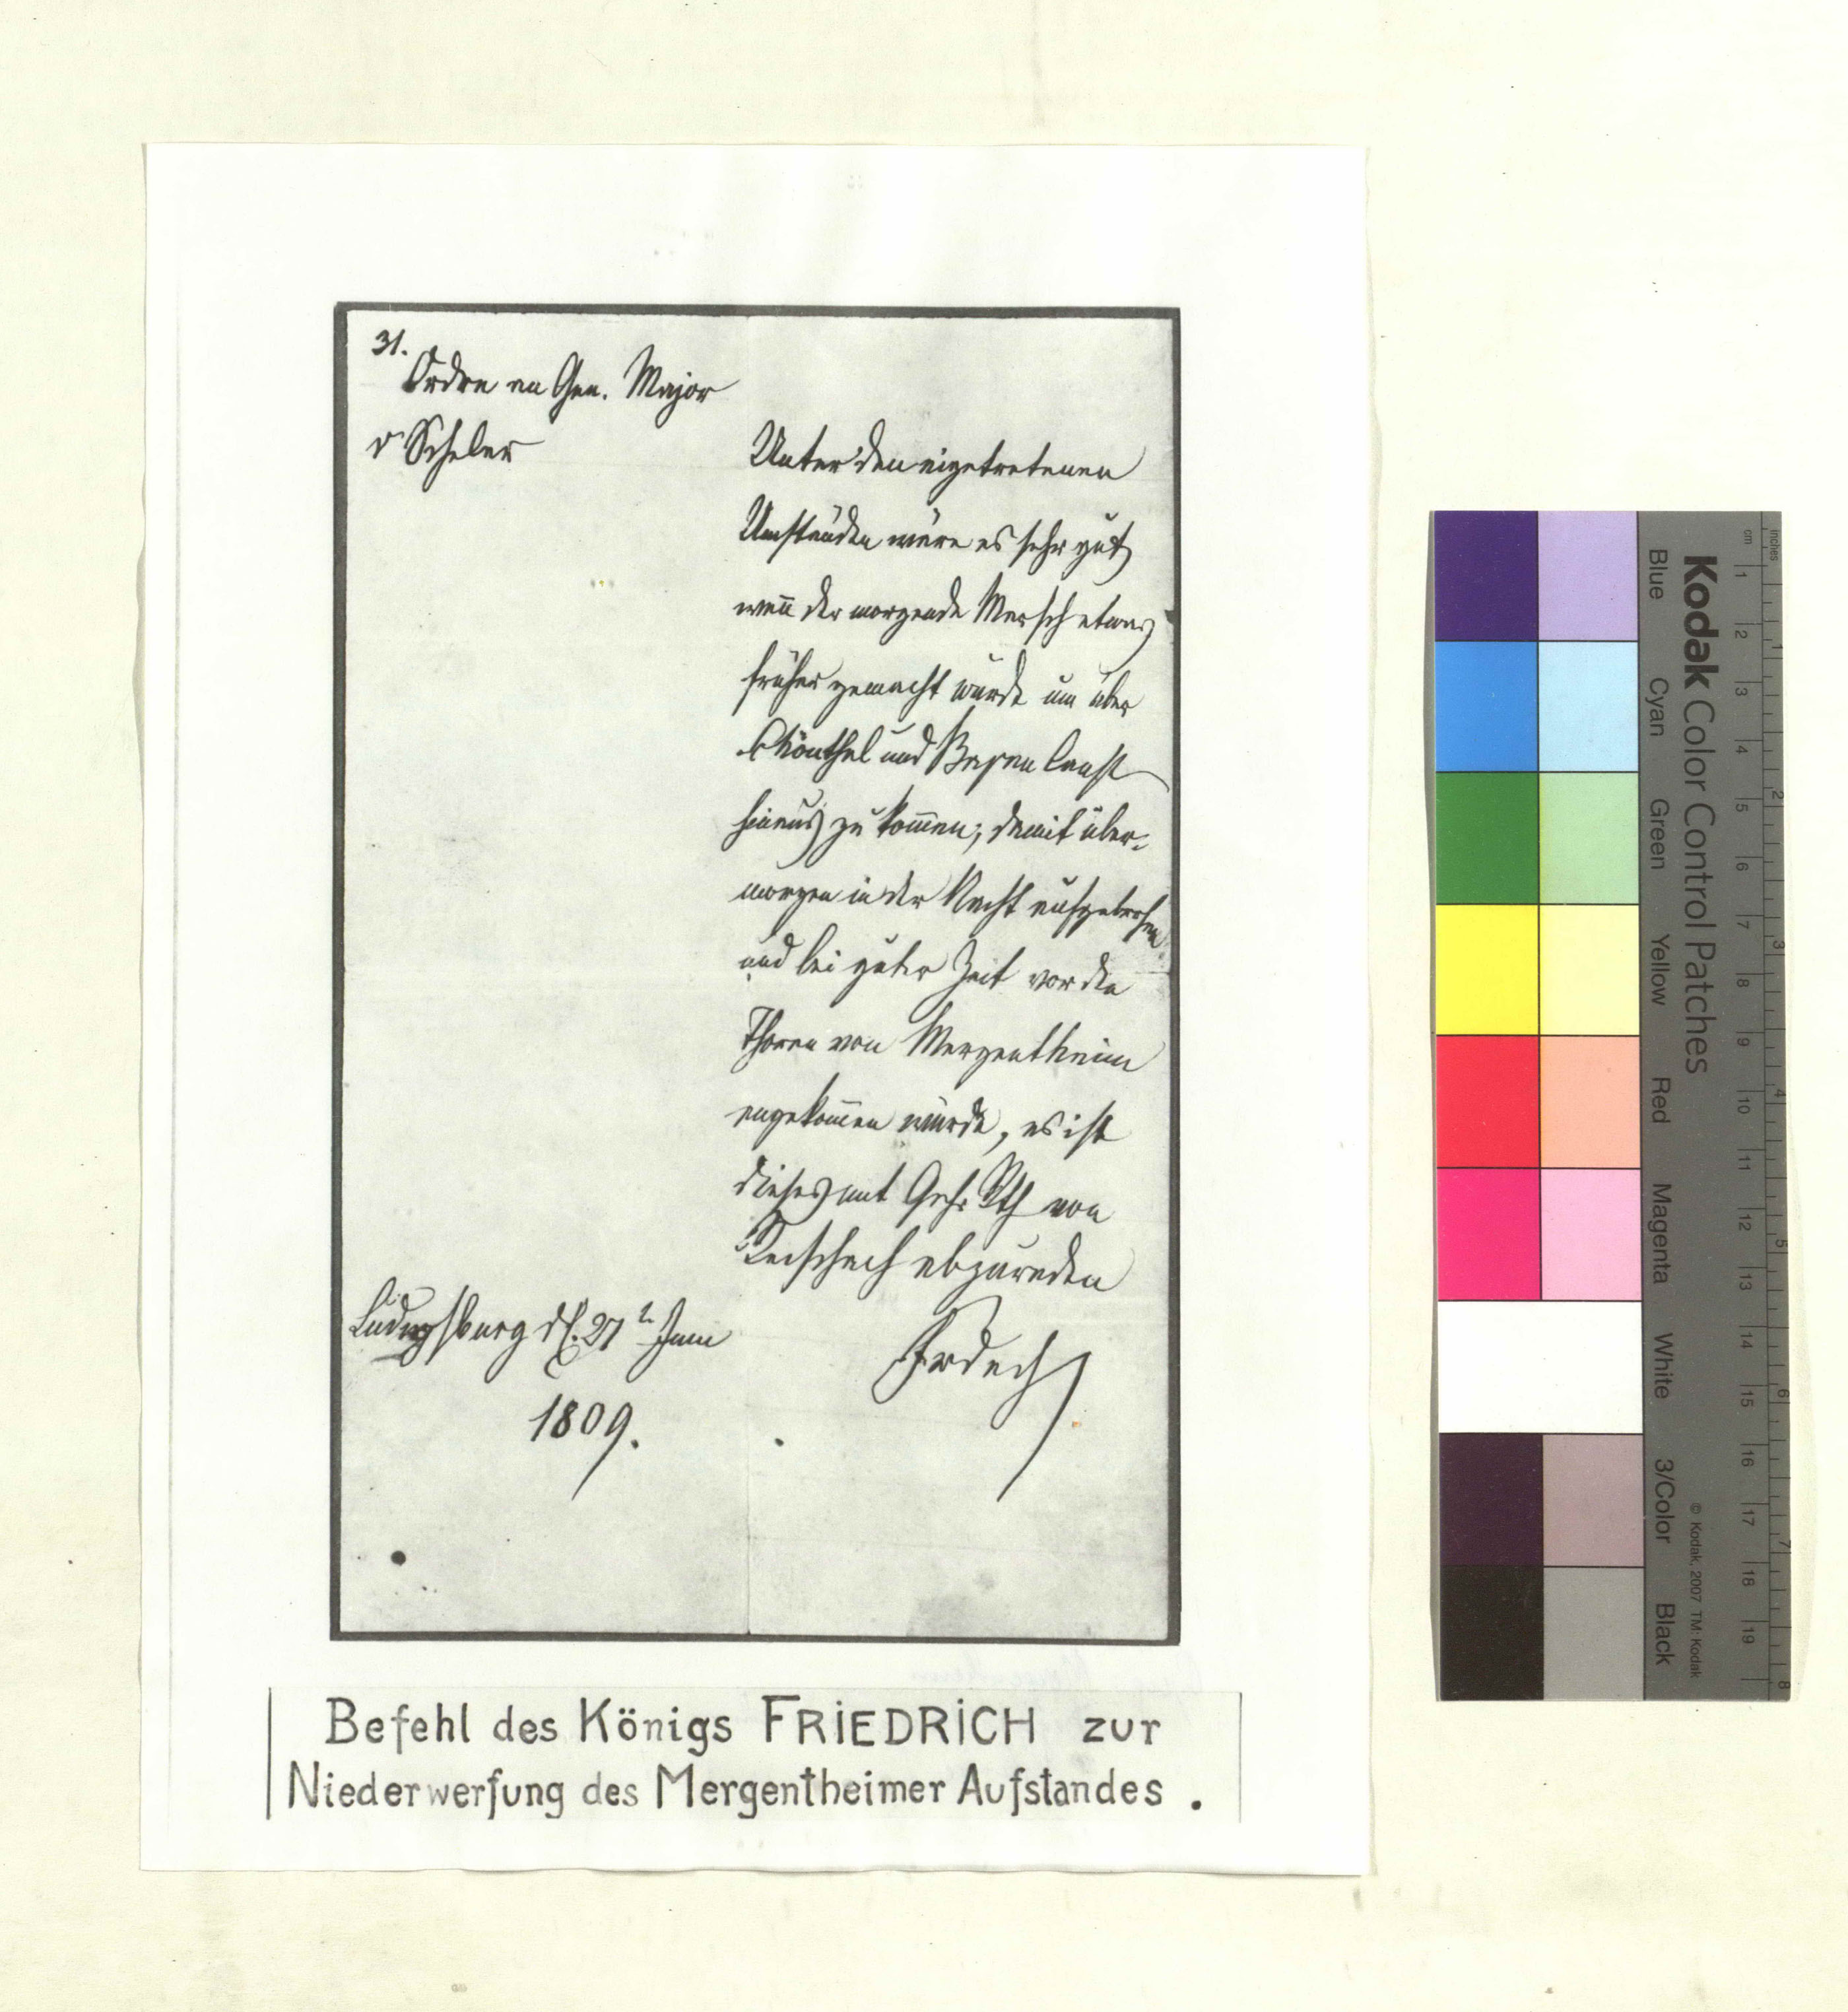 31.
Ordre an Gen. Major
v Scheler
Unter den eigetretenen
Umständen wäre es sehr gut
weñ der morgende Marsch etwas
früher gemacht würde um über
Schönthal und
hinaus zu kom̃en; damit über-
morgen in der Nacht aufgebrochen
und bei guter Zeit vor den
Thoren von Mergentheim
angekom̃en würde, es ist
dieses mit Geh. Rth von
Reischach abzureden
Ludwigsburg d. 27 Juni
1809.
Frdrich
Befehl des Königs FRIEDRICH zur
Niederwerfung des Mergentheimer Aufstandes.
Kodak Color Control Patches
Blue Cyan Green Yellow Red Magenta White 3/Color Black
© Kodak, 2007 TM: Kodak
inches 1 2 3 4 5 6 7 8
cm 1 2 3 4 5 6 7 8 9 10 11 12 13 14 15 16 17 18 19